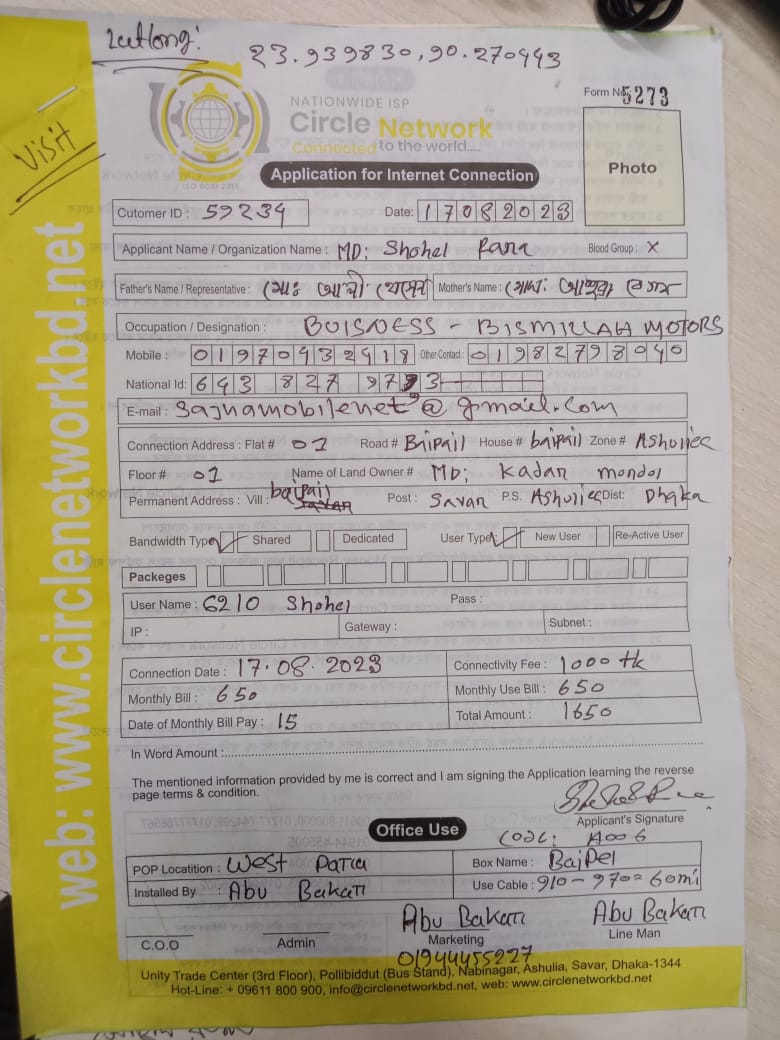 Latlong:
23.939830,90.270443
Visit
NATIONWIDE ISP
Circle Network
Connected to the world.....
ISO 9001:2015
Form No 5273
Photo
Application for Internet Connection
Cutomer ID : 59234 Date: 17082023
Applicant Name / Organization Name : MD: Shohel Rana Blood Group : X
Father's Name / Representative : মোঃ আলী হোসেন Mother's Name :
Occupation / Designation : BUISNESS - BISMILLAH MOTORS
Mobile : 01970432418 Other Contact : 01982798040
National Id: 643 827 9773
E-mail : sajnamobilenet@gmail.com
Connection Address : Flat # 01 Road # Baipail House # baipail Zone # Ashuliea
Floor # 01 Name of Land Owner # MD: Kadar mondol
Permanent Address : Vill : baipail Post : Savar P.S. Ashuliea Dist: Dhaka
Bandwidth Type Shared Dedicated User Type: New User Re-Active User
Packeges
User Name : 6210 Shohel Pass :
IP : Gateway : Subnet :
Connection Date : 17.08.2023 Connectivity Fee : 1000 tk
Monthly Bill : 650 Monthly Use Bill : 650
Date of Monthly Bill Pay : 15 Total Amount : 1650
In Word Amount :
The mentioned information provided by me is correct and I am signing the Application learning the reverse
page terms & condition.
Applicant's Signature
Office Use
Code: A006
POP Locatition : West Para Box Name : Baipel
Installed By : Abu Bakar Use Cable : 910-970=60mi
C.O.O Admin Abu Bakar Marketing Abu Bakar Line Man
01944455227
Unity Trade Center (3rd Floor), Pollibiddut (Bus Stand), Nabinagar, Ashulia, Savar, Dhaka-1344
Hot-Line: + 09611 800 900, info@circlenetworkbd.net, web: www.circlenetworkbd.net
web: www.circlenetworkbd.net